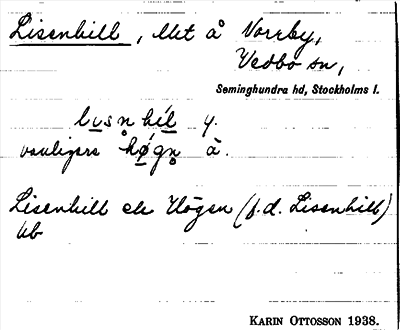 Lisenhill, lht å Norrby,
Vedbo sn,
Seminghundra hd, Stockholms l.
lisnhil y.
vanligare högn à.
Lisenhill el. Högen (f.d. Lisenhill)
Ub
KARIN OTTOSSON 1938.